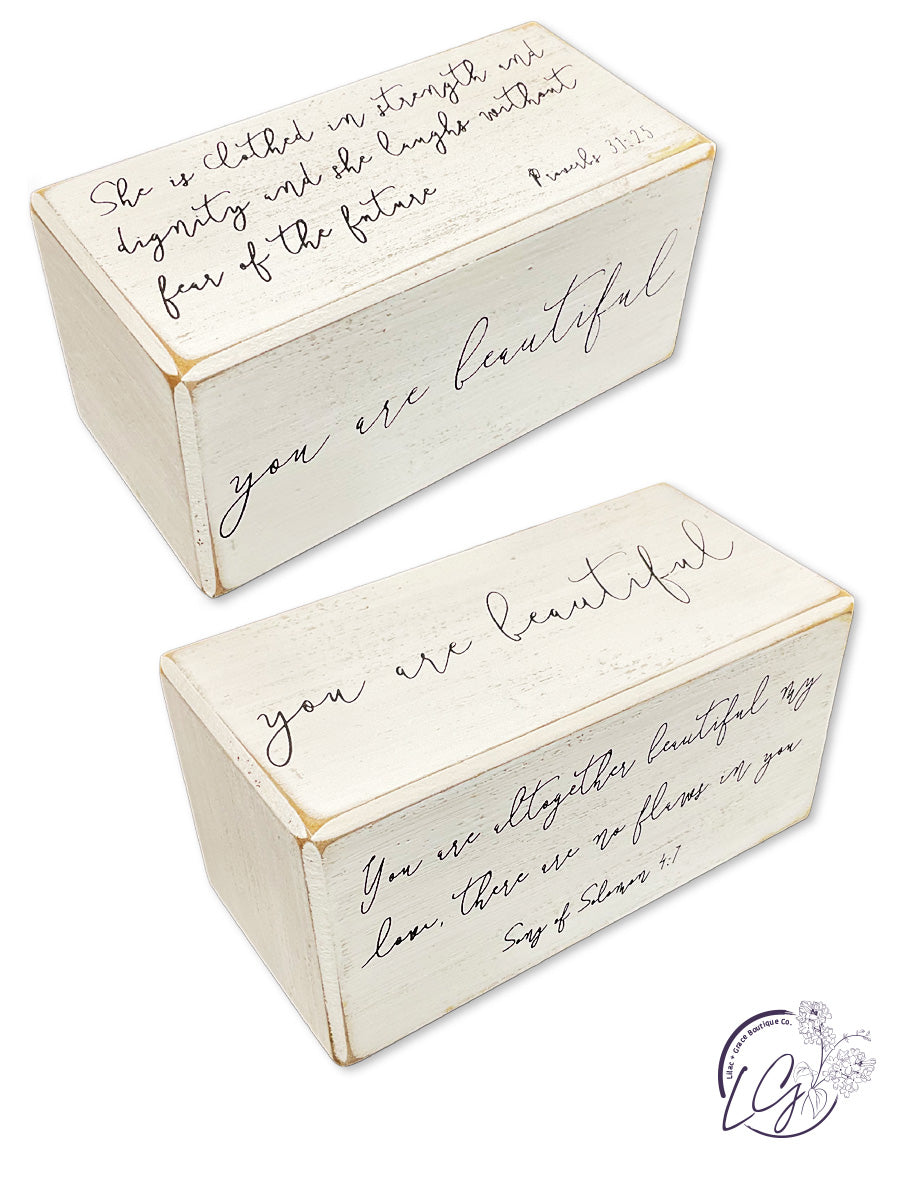 She is clothed in strength and
dignity and she laughs without
fear of the future
Proverbs 31:25
you are beautiful
you are beautiful
You are altogether beautiful my
love, there are no flaws in you
Song of Solomon 4:7
Lilac + Grace Boutique Co.
LG